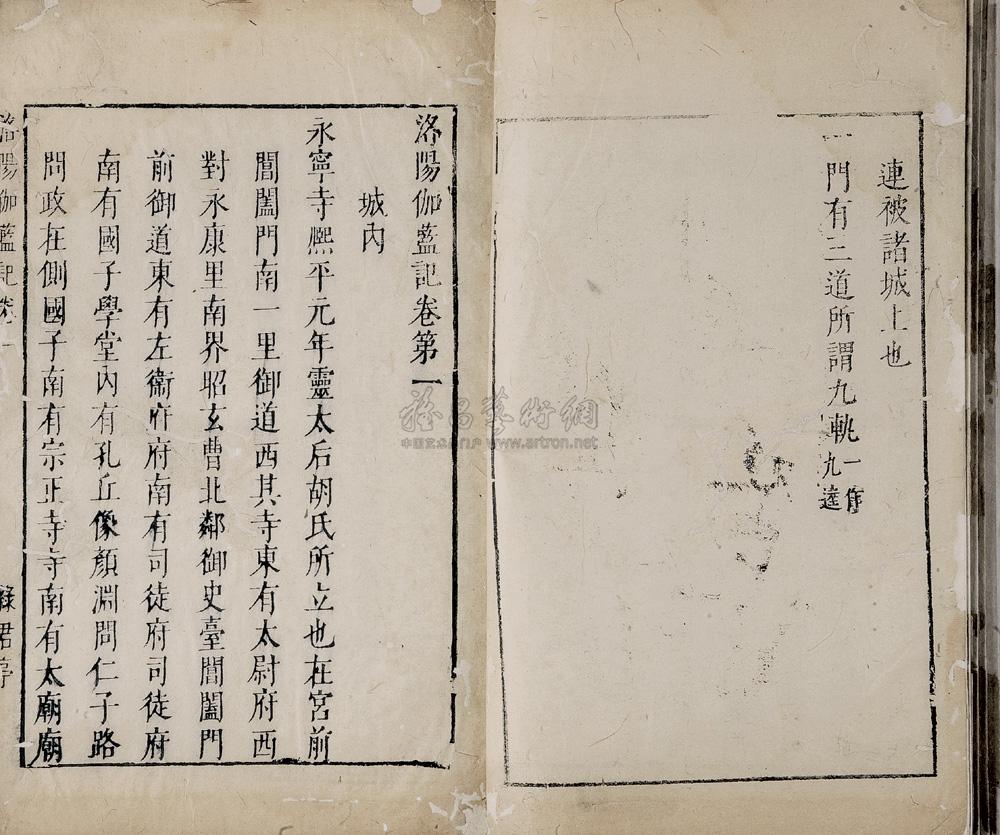 連被諸城上也
一門有三道所謂九軌一作九逵
洛陽伽藍記卷第一
城內
永寧寺熙平元年靈太后胡氏所立也在宮前
閶闔門南一里御道西其寺東有太尉府西
對永康里南界昭玄曹北鄰御史臺閶闔門
前御道東有左衞府府南有司徒府司徒府
南有國子學堂內有孔丘像顏淵問仁子路
問政在側國子南有宗正寺寺南有太廟廟
洛陽伽藍記卷一
綠君亭
雅昌藝術網
中国艺术品门户 www.artron.net